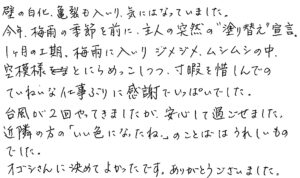 壁の白化、亀裂も入り、気にはなっていました。
今年、梅雨の季節を前に、主人の突然の"塗り替え"宣言。
1ヶ月の工期、梅雨に入り ジメジメ、ムシムシの中、
空模様とにらめっこしつつ、寸暇を惜しんでの
ていねいな仕事ぶりに感謝でいっぱいでした。
台風が2回やってきましたが、安心して過ごせました。
近隣の方の「いい色になったね。」のことばはうれしいもの
でした。
オゴシさんに決めてよかったです。ありがとうございました。